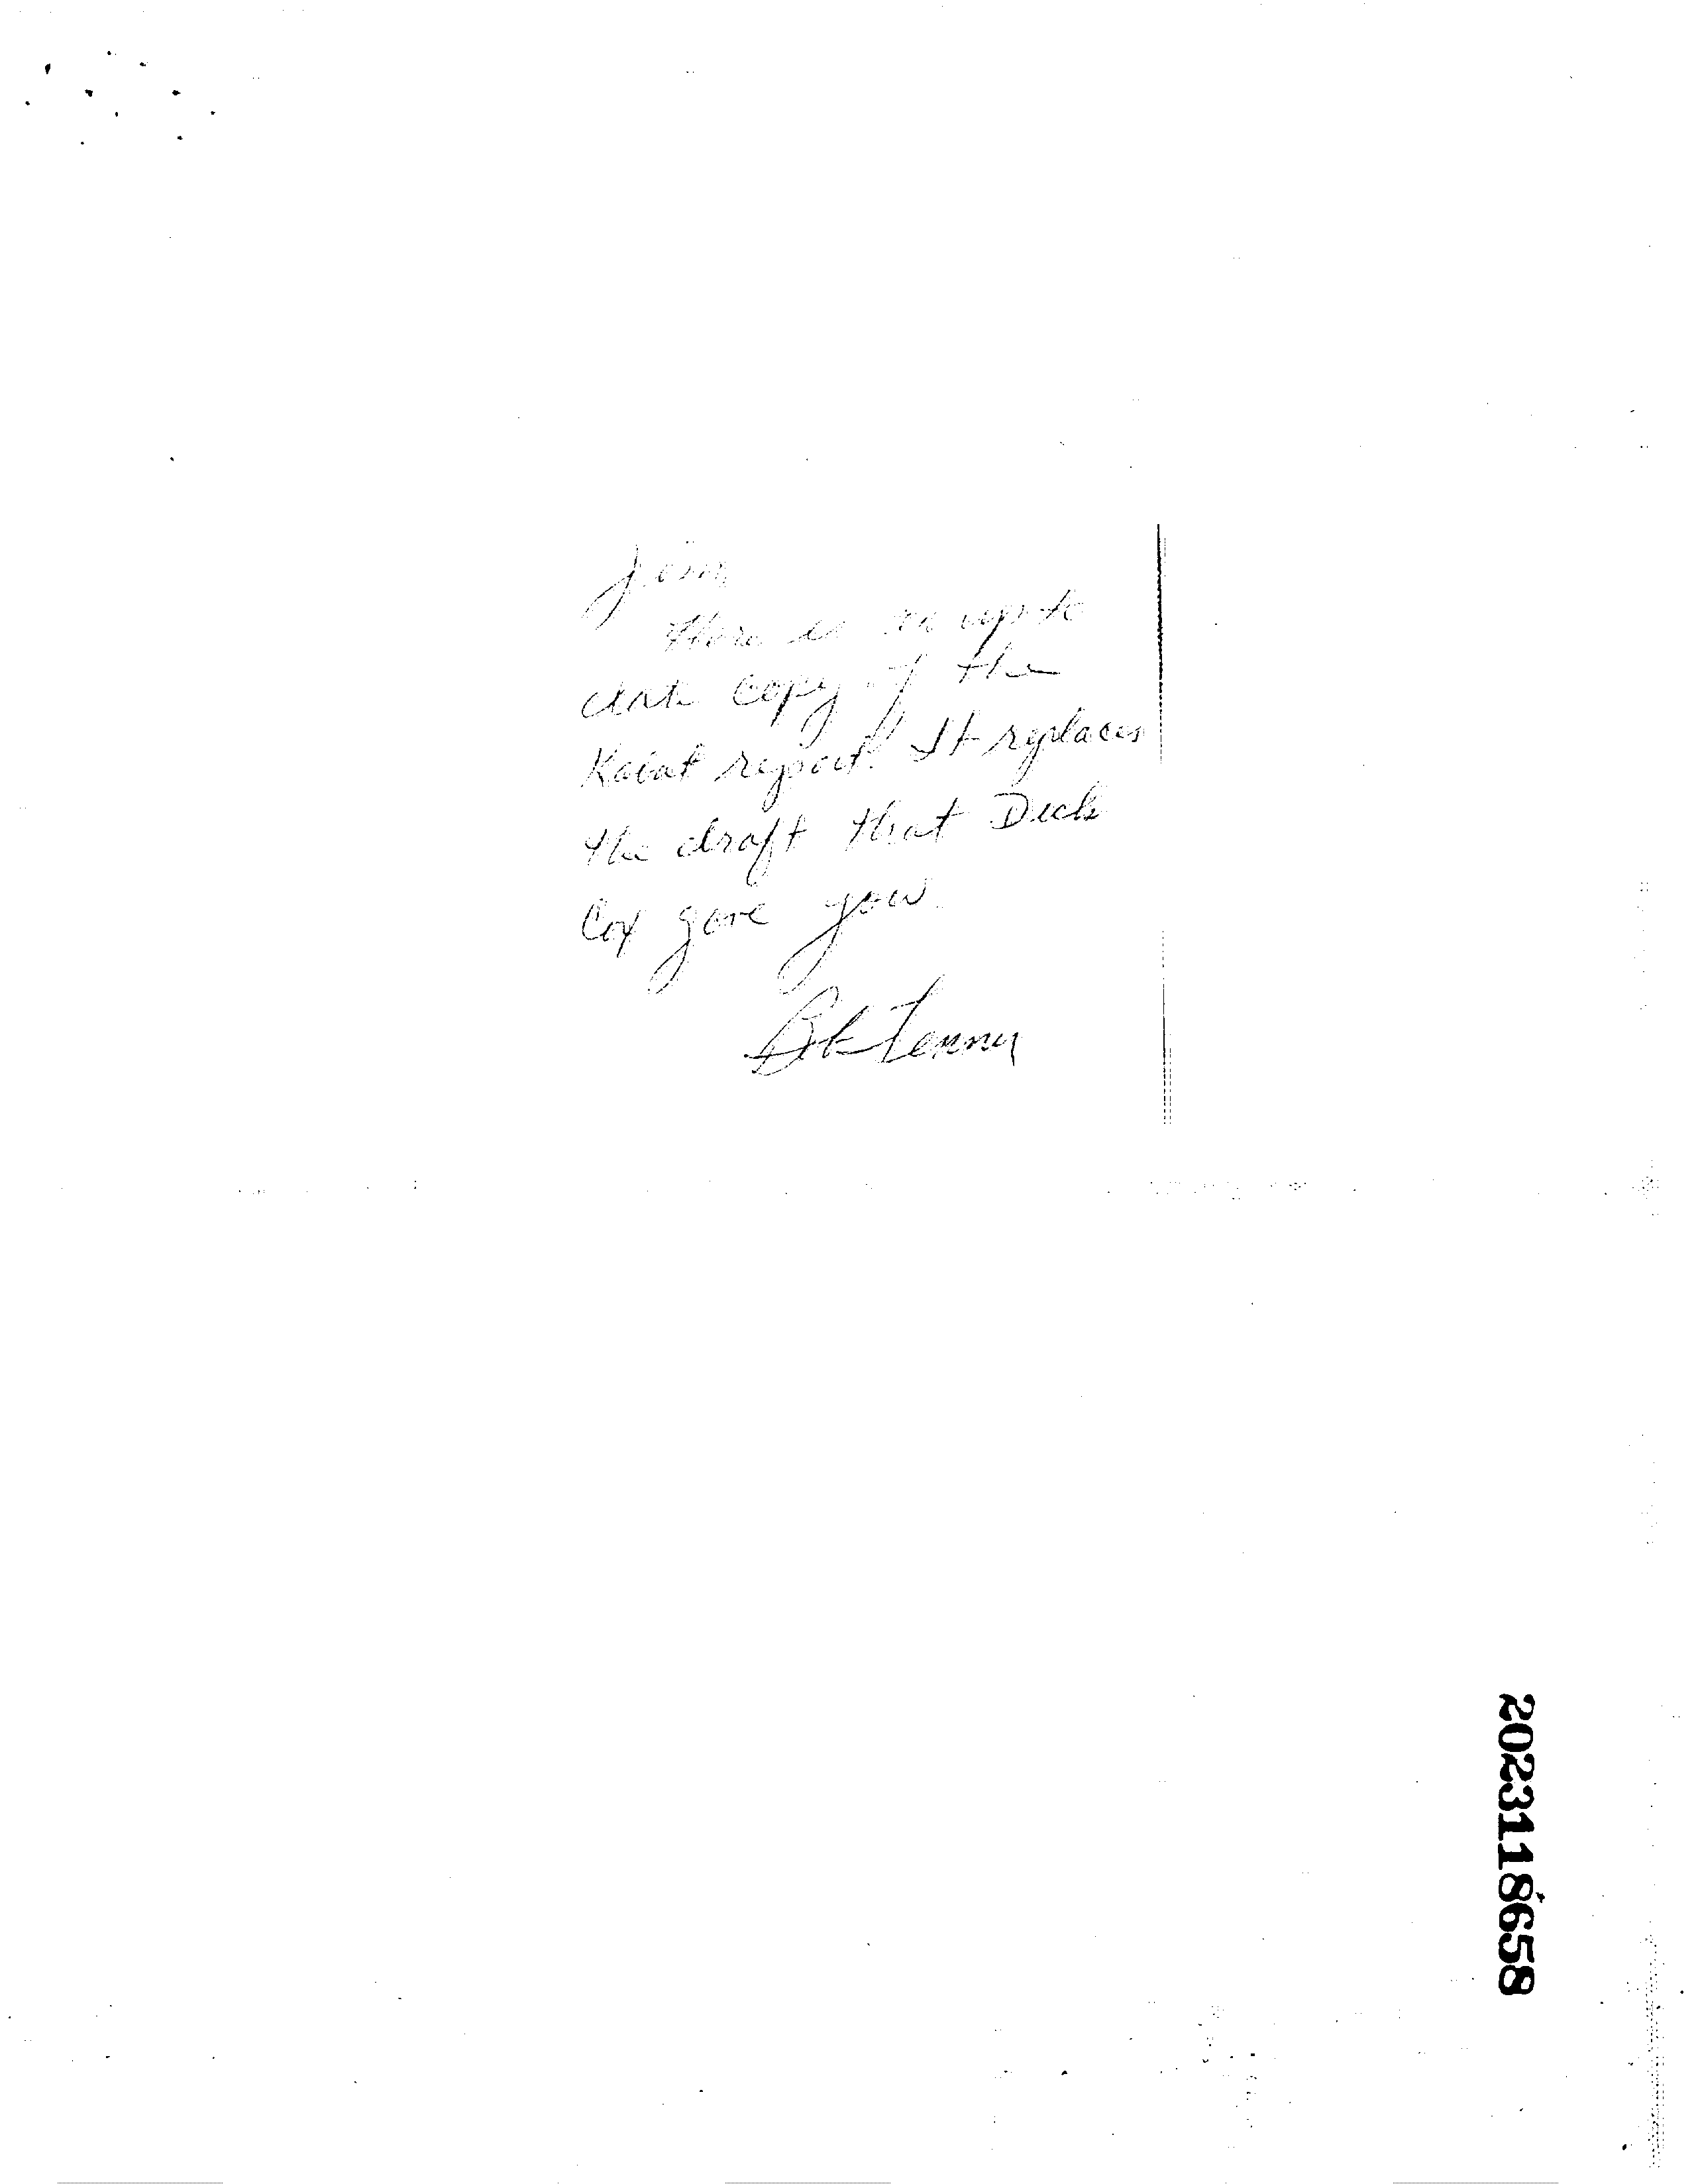 Jim
There is an up to
date copy of the
Kabat report. It replaces
the draft that Dick
Cox gave you.
Bob Tenney
2023118658